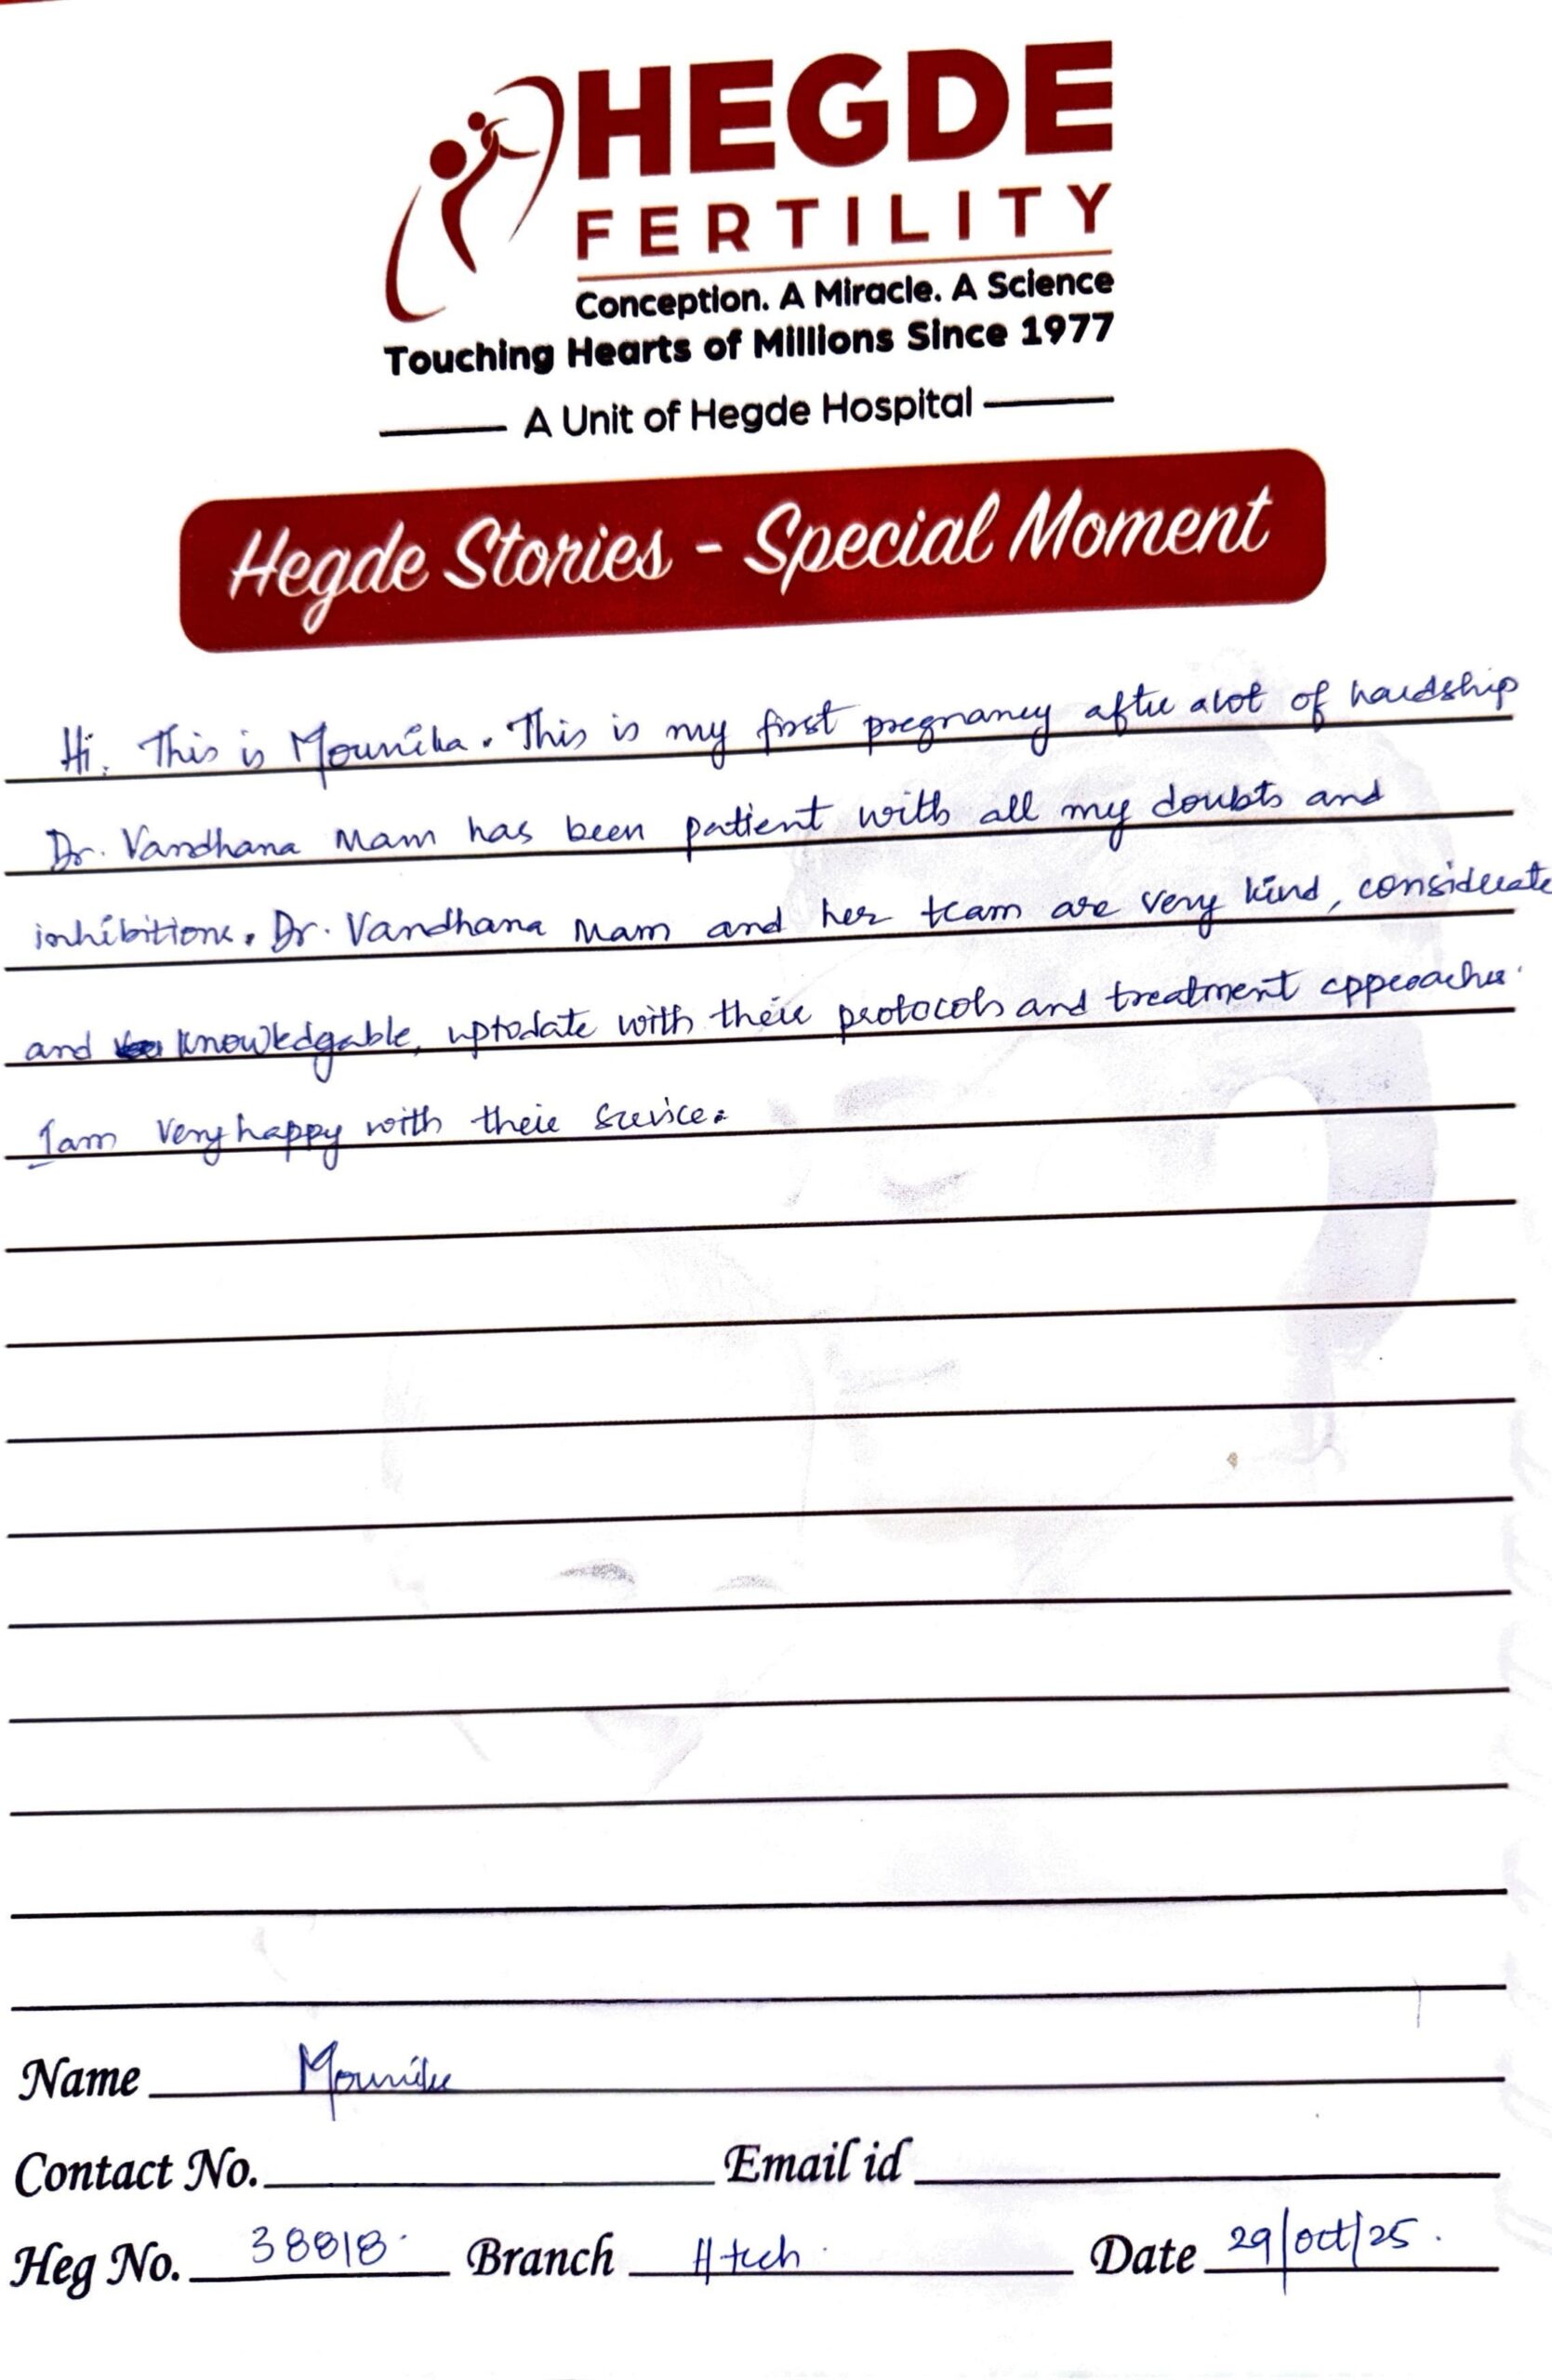 HEGDE
FERTILITY
Conception. A Miracle. A Science
Touching Hearts of Millions Since 1977
A Unit of Hegde Hospital
Hegde Stories - Special Moment
Hi. This is Mounika. This is my first pregnancy after alot of hardship
Dr. Vandhana Mam has been patient with all my doubts and
inhibitions. Dr. Vandhana Mam and her team are very kind, considerate
and knowledgable, uptodate with their protocols and treatment approaches.
I am very happy with their service.
Name Mounika
Contact No. Email id
Heg No. 38818 Branch Htech Date 29/oct/25.